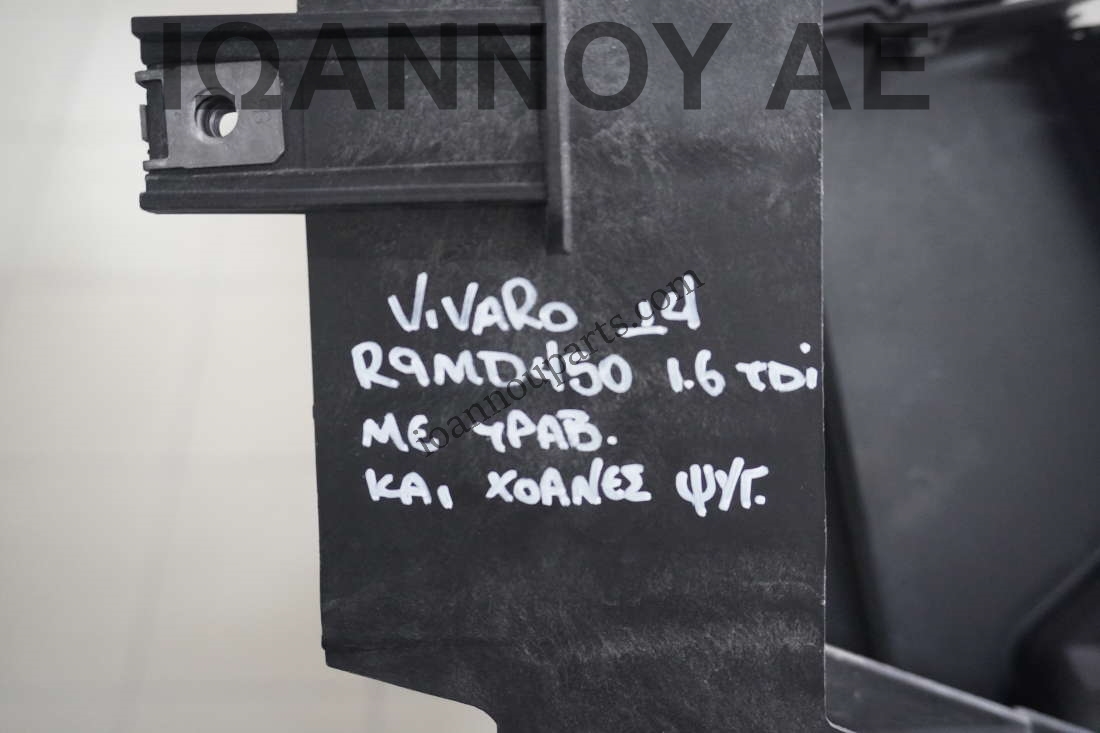 ΙΩΑΝΝΟΥ ΑΕ
VIVARO 14
R9MD450 1.6 TDi
ΜΕ ΤΡΑΒ.
ΚΑΙ ΧΟΑΝΕΣ ΨΥΓ.
ioannouparts.com